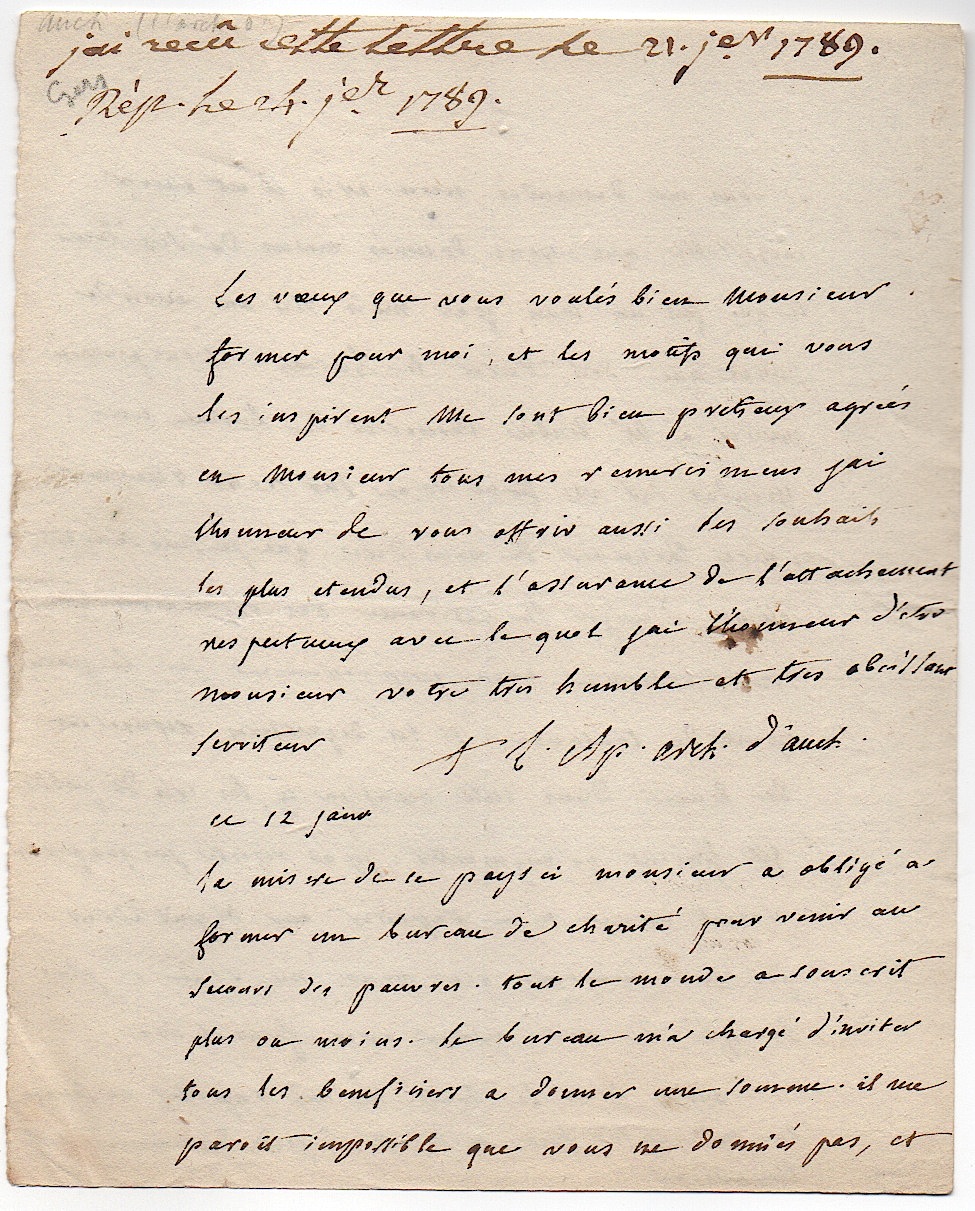 auch
jai recu cette lettre le 21. jer 1789.
Gers
Rép. le 24. jer 1789.
Les vœux que vous voulés bien Monsieur
former pour moi, et les motifs qui vous
les inspirent me sont bien pretieux agrées
en Monsieur tous mes remercimens jai
lhonneur de vous offrir aussi les souhaits
les plus etendus, et l'assurance de l'attachement
respectueux avec lequel jai lhonneur d'etre
monsieur votre tres humble et tres obeissant
serviteur
+ L. Ap. arch. d'auch.
ce 12 janv
la misere de ce pays ci monsieur a obligé a
former un bureau de charité pour venir au
secours des pauvres. tout le monde a souscrit
plus ou moins. le bureau m'a chargé d'inviter
tous les beneficiers a donner une somme. il me
paroit impossible que vous ne donniés pas, et